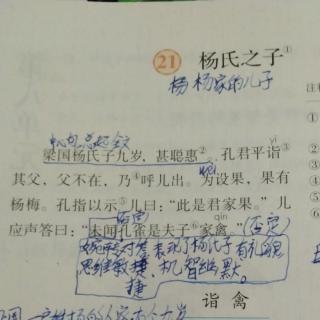 21 杨氏之子①
杨 杨家的儿子
中心句,总起全文
梁国杨氏子九岁,甚聪惠②。孔君平诣yì
慧
其父,父不在,乃④呼儿出。为设果,果有
杨梅。孔指以示⑤儿曰:“此是君家果。”儿
否定
应声答曰:“未闻孔雀是夫子⑥家禽qín。”(否定)
婉转对答 表现了杨氏子有礼貌
思维敏捷、机智幽默。
捷
诣 禽